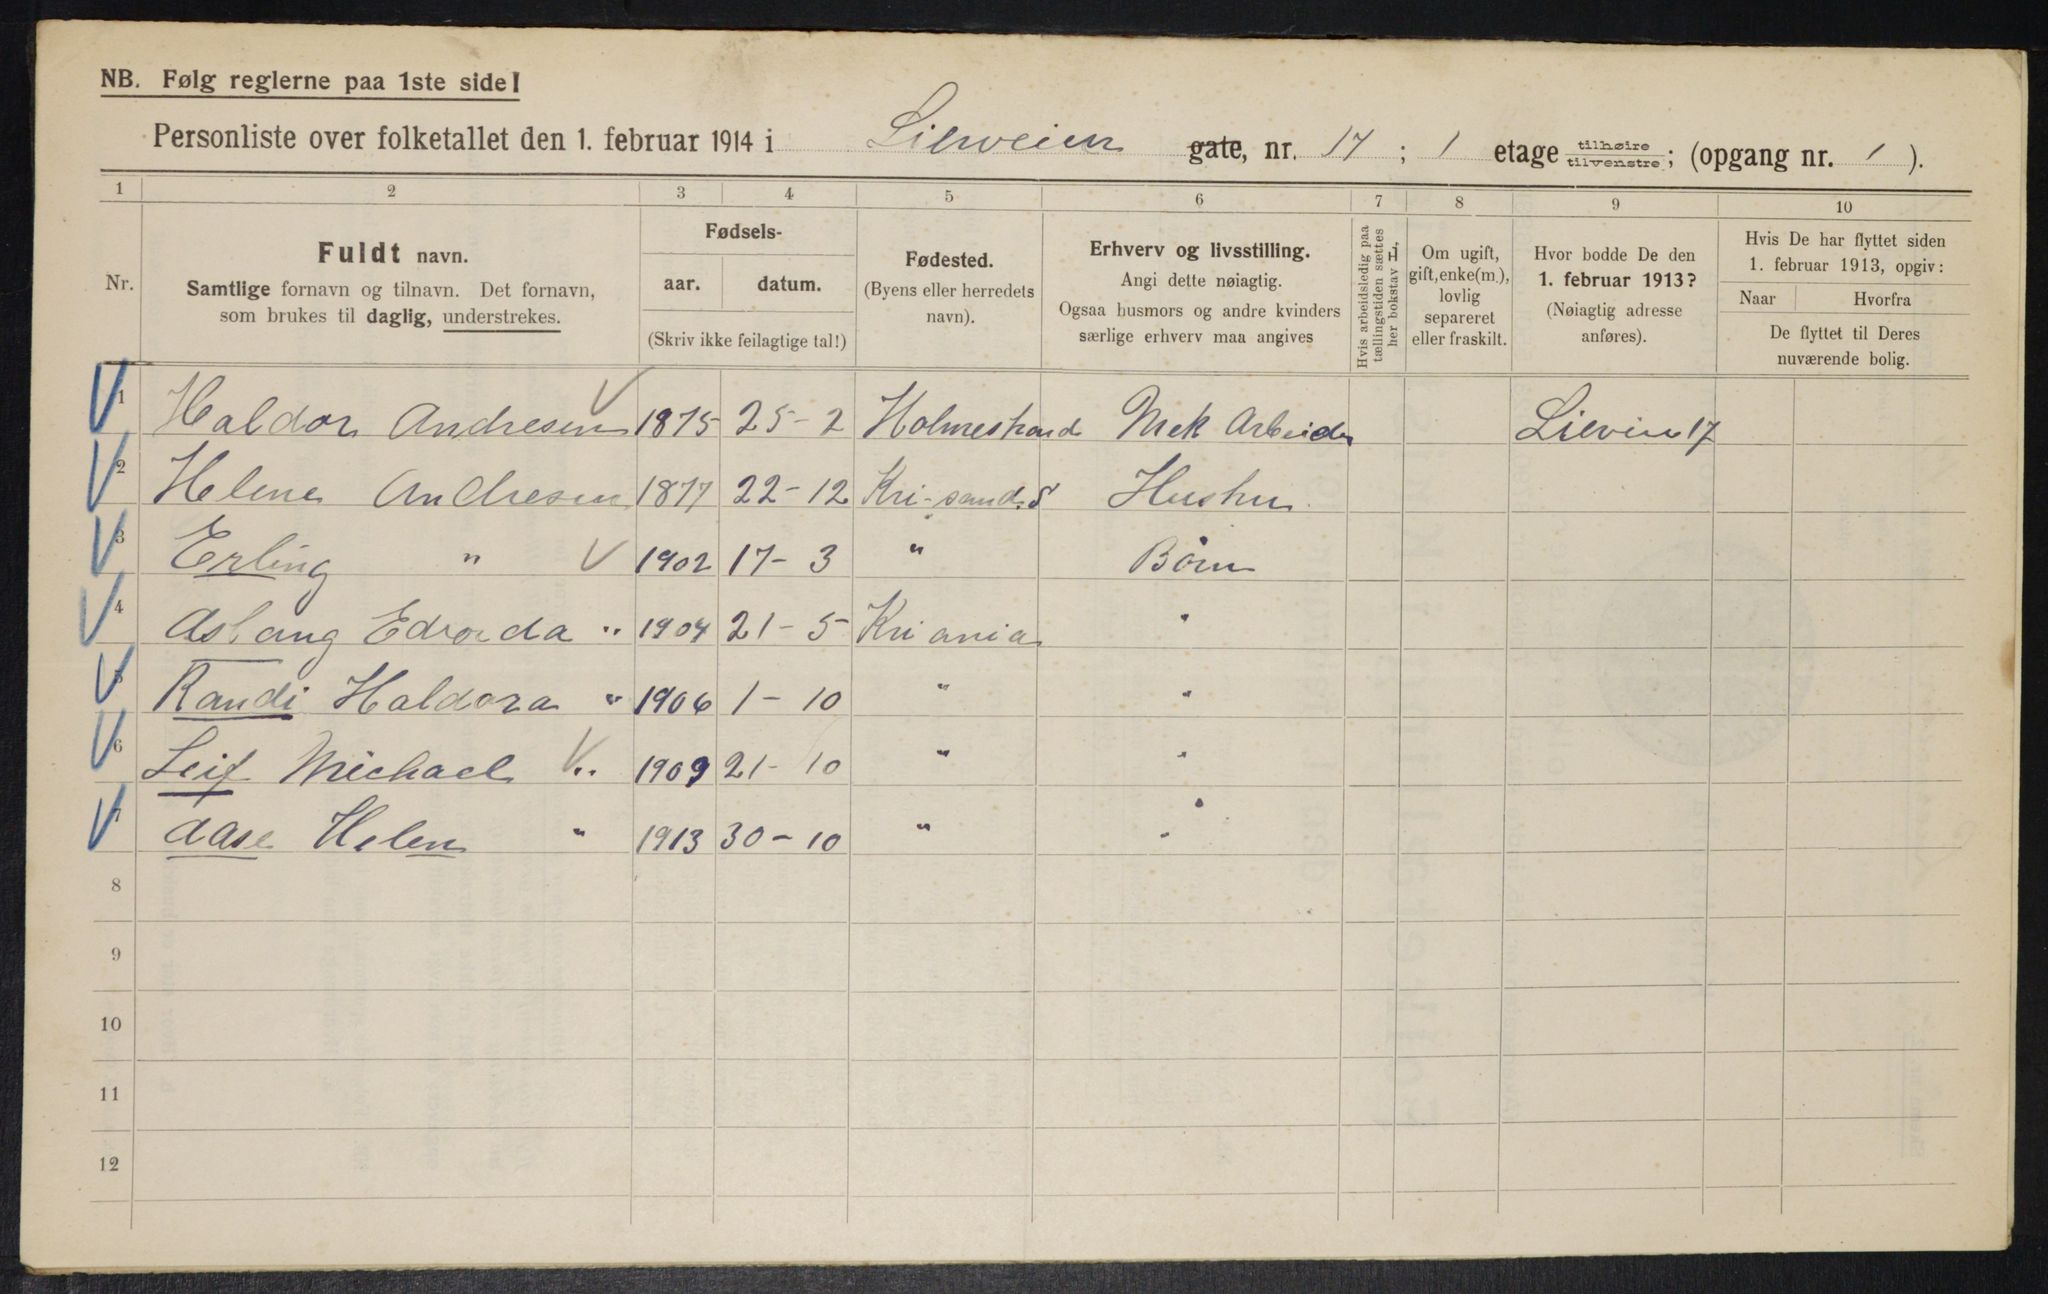 NB. Følg reglerne paa 1ste side!
Personliste over folketallet den 1. februar 1914 i Lierveien gate, nr. 17 ; 1 etage tilhøire tilvenstre ; (opgang nr. 1 ).
1 2 3 4 5 6 7 8 9 10
Nr.
Fuldt navn.
Samtlige fornavn og tilnavn. Det fornavn,
som brukes til daglig, understrekes.
Fødsels-
aar. datum.
(Skriv ikke feilagtige tal!)
Fødested.
(Byens eller herredets
navn).
Erhverv og livsstilling.
Angi dette nøiagtig.
Ogsaa husmors og andre kvinders
særlige erhverv maa angives
Hvis arbeidsledig paa
tællingstiden sættes
her bokstav L.
Om ugift,
gift, enke(m.),
lovlig
separeret
eller fraskilt.
Hvor bodde De den
1. februar 1913?
(Nøiagtig adresse
anføres).
Hvis De har flyttet siden
1. februar 1913, opgiv:
Naar Hvorfra
De flyttet til Deres
nuværende bolig.
1 Haldor Andresen 1875 25-2 Holmestrand Mek Arbeider Lierveien 17
2 Helene Andresen 1877 22-12 Kri-sand.S Hushu
3 Erling " 1902 17-3 " Børn
4 Aslaug Edvarda " 1904 21-5 Kriania "
5 Randi Haldora " 1906 1-10 " "
6 Leif Michael " 1909 21-10 " "
7 Aase Helen " 1913 30-10 " "
8
9
10
11
12